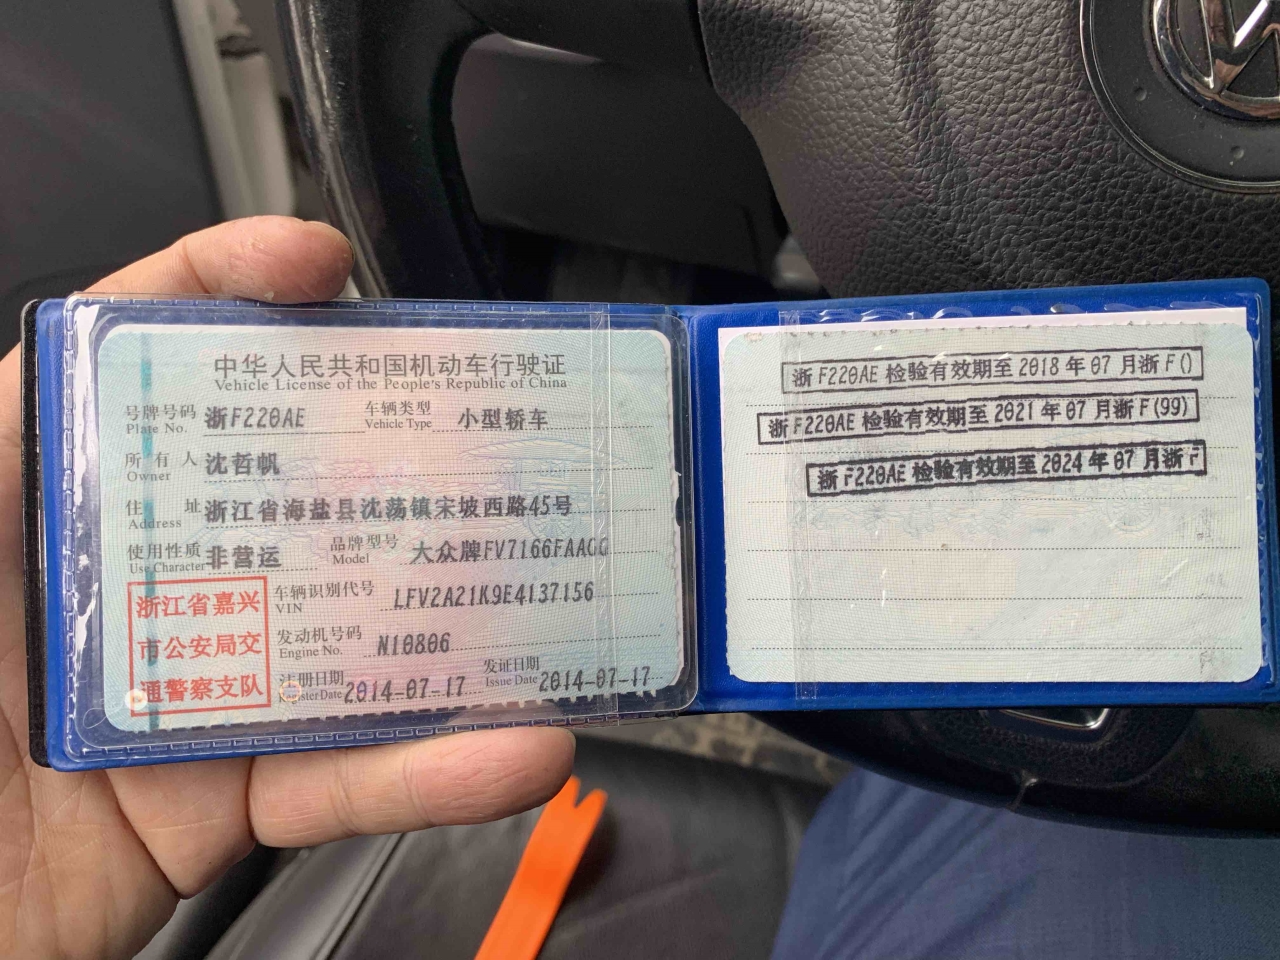 中华人民共和国机动车行驶证
Vehicle License of the People's Republic of China
号牌号码 浙F220AE 车辆类型 小型轿车
Plate No. Vehicle Type
所有人 沈哲帆
Owner
住址 浙江省海盐县沈荡镇宋坡西路45号
Address
使用性质 非营运 品牌型号 大众牌FV7166FAACG
Use Character Model
浙江省嘉兴
市公安局交
通警察支队
车辆识别代号 LFV2A21K9E4137156
VIN
发动机号码 N10806
Engine No.
注册日期 2014-07-17 发证日期 2014-07-17
Register Date Issue Date
浙F220AE 检验有效期至 2018 年 07 月浙F()
浙F220AE 检验有效期至 2021 年 07 月浙F(99)
浙F220AE 检验有效期至 2024 年 07 月浙F